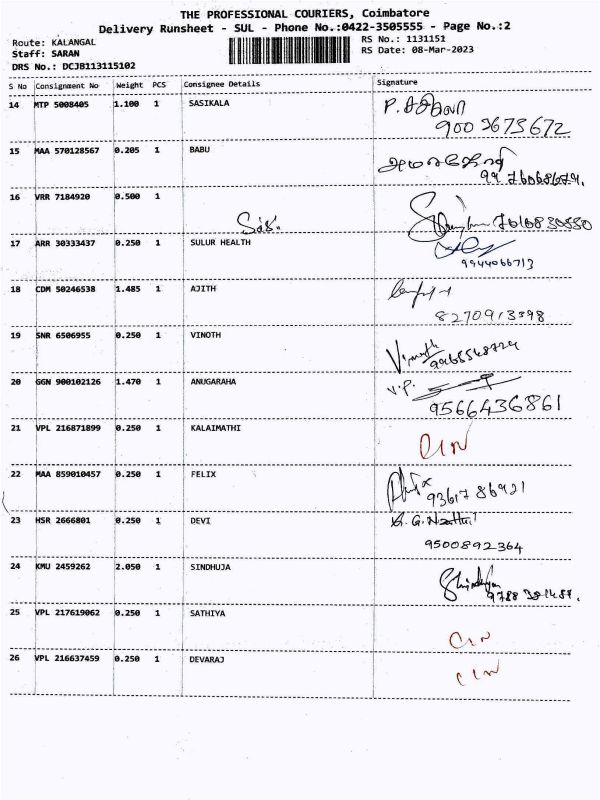 THE PROFESSIONAL COURIERS, Coimbatore
Delivery Runsheet - SUL - Phone No.:0422-3505555 - Page No.:2
Route: KALANGAL
RS No.: 1131151
Staff: SARAN
RS Date: 08-Mar-2023
DRS No.: DCJB113115102
S No Consignment No Weight PCS Consignee Details Signature
14 MTP 5008405 1.100 1 SASIKALA
9003673672
15 MAA 570128567 0.205 1 BABU
16 VRR 7184920 0.500 1
17 ARR 30333437 0.250 1 SULUR HEALTH
9944066713
18 CDM 50246538 1.485 1 AJITH
8270913398
19 SNR 6506955 0.250 1 VINOTH
Vinoth
20 GGN 900102126 1.470 1 ANUGARAHA
V.P.
9566436861
21 VPL 216871899 0.250 1 KALAIMATHI
22 MAA 859010457 0.250 1 FELIX
9361786921
23 HSR 2666801 0.250 1 DEVI
9500892364
24 KMU 2459262 2.050 1 SINDHUJA
25 VPL 217619062 0.250 1 SATHIYA
26 VPL 216637459 0.250 1 DEVARAJ